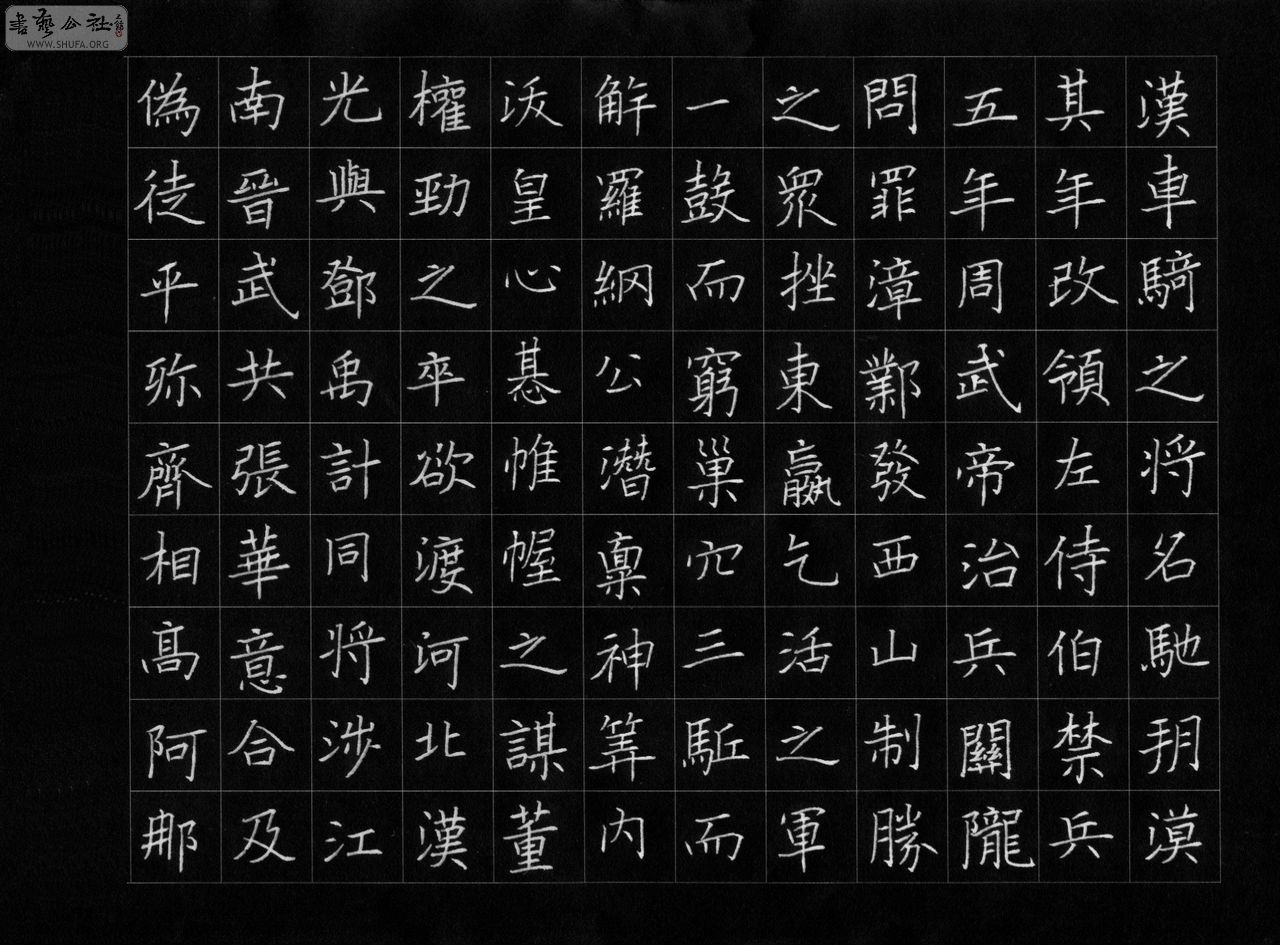 書藝公社
WWW.SHUFA.ORG
漢車騎之將名馳朔漠
其年改領左侍伯禁兵
五年周武帝治兵關隴
問罪漳鄴發西山制勝
之眾挫東嬴乞活之軍
一鼓而窮巢穴三駈而
解羅網公潛稟神筭内
沃皇心惎帷幄之謀董
權勁之卒欲渡河北漢
光與鄧禹計同將涉江
南晉武共張華意合及
偽徒平殄齊相高阿那